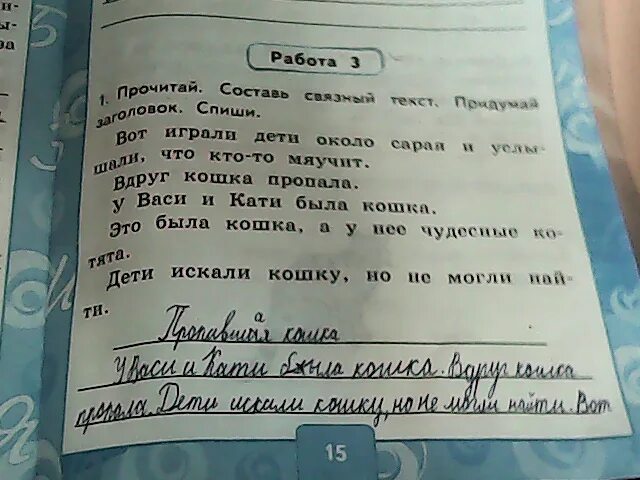 Работа 3
1. Прочитай. Составь связный текст. Придумай
заголовок. Спиши.
Вот играли дети около сарая и услы-
шали, что кто-то мяучит.
Вдруг кошка пропала.
У Васи и Кати была кошка.
Это была кошка, а у нее чудесные ко-
тята.
Дети искали кошку, но не могли най-
ти.
Пропавшая кошка
У Васи и Кати была кошка. Вдруг кошка
пропала. Дети искали кошку, но не могли найти. Вот
15